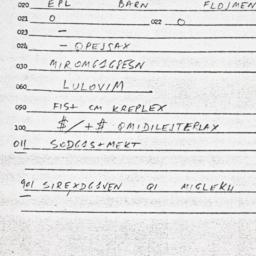 020 EPL BARN FLOJMEN
021 O 022 O
023 —
024 – OPEJSAX
030 MIROMG1GPESN
060 LULOVIM
090 FIST CM KREPLEX
100 $/+# QMIDILEJTEPLAX
011 SCDG1S+MEKT
901 SIREXDG1VEN QI MIGLEKU